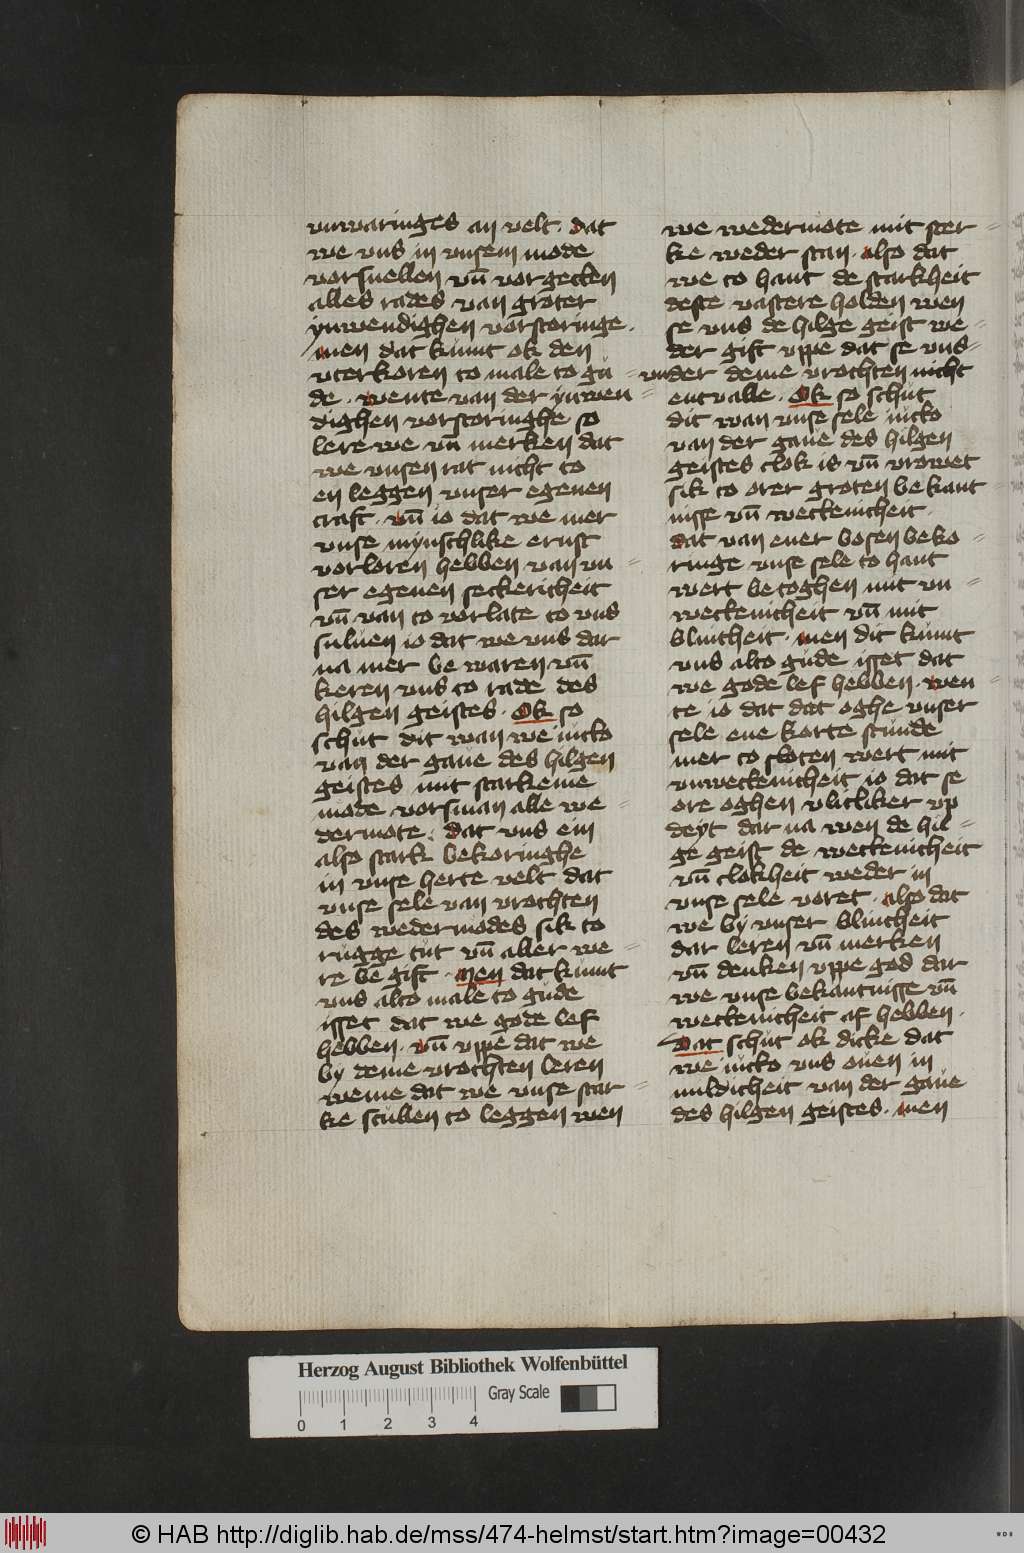 vnwaringes an velt. dat
we vns in vnsem mode
vorsnellen vn̄ vorgecken
alles rades van groter
ynwendighen vorstoringe.
men dat kumt ok den
vterkoren to male to gu
de. wente van der ynwen=
dighen vorstoringhe so
lere we vn̄ merken dat
we vnsen rat nicht to
en leggen vnser egenen
craft. vn̄ io dat we mer
vnse mynschlike ernst
vorloren hebben van vn=
ser egenen seckericheit
vn̄ van to vorlate to vns
suluen io dat we vns dar
na mer be waren vn̄
keren vns to rade des
hilgen geistes. Ok so
schut dit wan we iucko
van der gaue des hilgen
geistes mit starkeme
mode vorsman alle we=
dermote. dat vns ein
also stark bekoringhe
in vnse herte velt dat
vnse sele van vrochten
des wedermodes sik to
rugge tut vn̄ aller we=
re be gift. Men dat kumt
vns alto male to gude
isset dat we gode lef
hebben. vn̄ vppe dat we
by deme vrochten leren
weme dat we vnse star=
ke scullen to leggen wen
we wedermote mit ster=
ke weder stan. also dat
we to hant de starkheit
deste vastere holden wen
se vns de hilge geist we=
der gift vppe dat se vns=
vnder deme vrochten nicht
entvalle. Ok so schut
dit wan vnse sele iucko
van der gaue des hilgen
geistes clok is vn̄ vrowet
sik to orer groten bekant=
nisse vn̄ weckenicheit.
dat van ener bosen beko=
ringe vnse sele to hant
wert betoghen mit vn=
weckenicheit vn̄ mit
blintheit. men dit kumt
vns alto gude isset dat
we gode lef hebben. wen=
te io dat dat oghe vnser
sele ene korte stunde
mer to sloten wert mit
vnweckenicheit io dat se
ore oghen vlitliker vp
deyt dar na wen de hil=
ge geist de weckenicheit
vn̄ clokheit weder in
vnse sele voret. also dat
we by vnser blintheit
dar leren vn̄ merken
vn̄ denken vppe god dar
we vnse bekantnisse vn̄
weckenicheit af hebben.
Dat schut ok dicke dat
we iucko vns ouen in
mildicheit van der gaue
des hilgen geistes. men
Herzog August Bibliothek Wolfenbüttel
Gray Scale
0 1 2 3 4
© HAB http://diglib.hab.de/mss/474-helmst/start.htm?image=00432